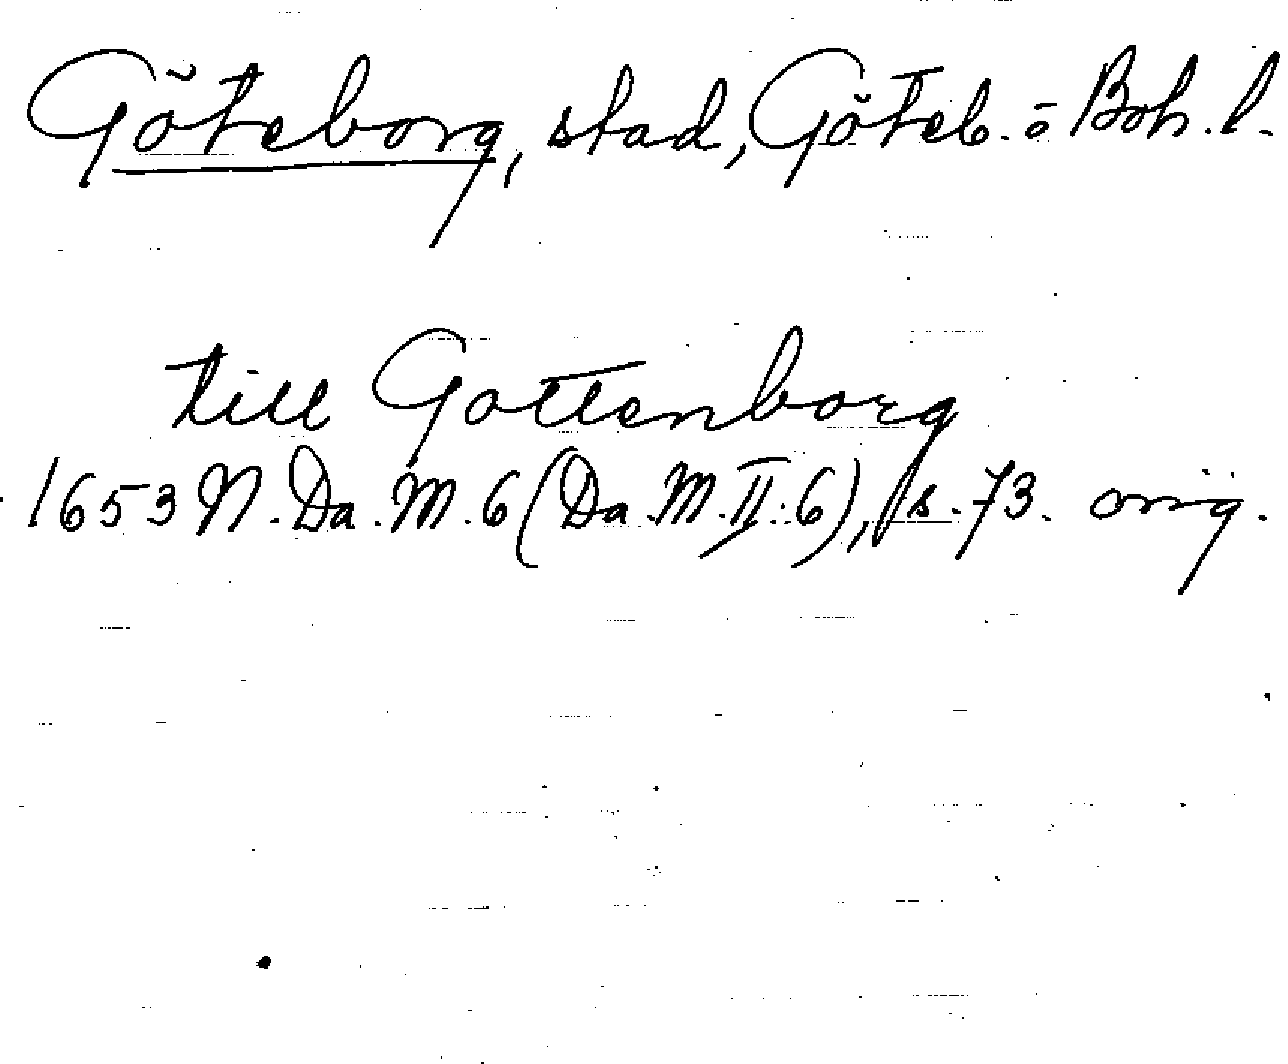 Göteborg, stad, Göteb. o Boh. l.
till Gottenborg
1653 N. Da. M. 6 (Da. M. II: 6), s. 73. orig.